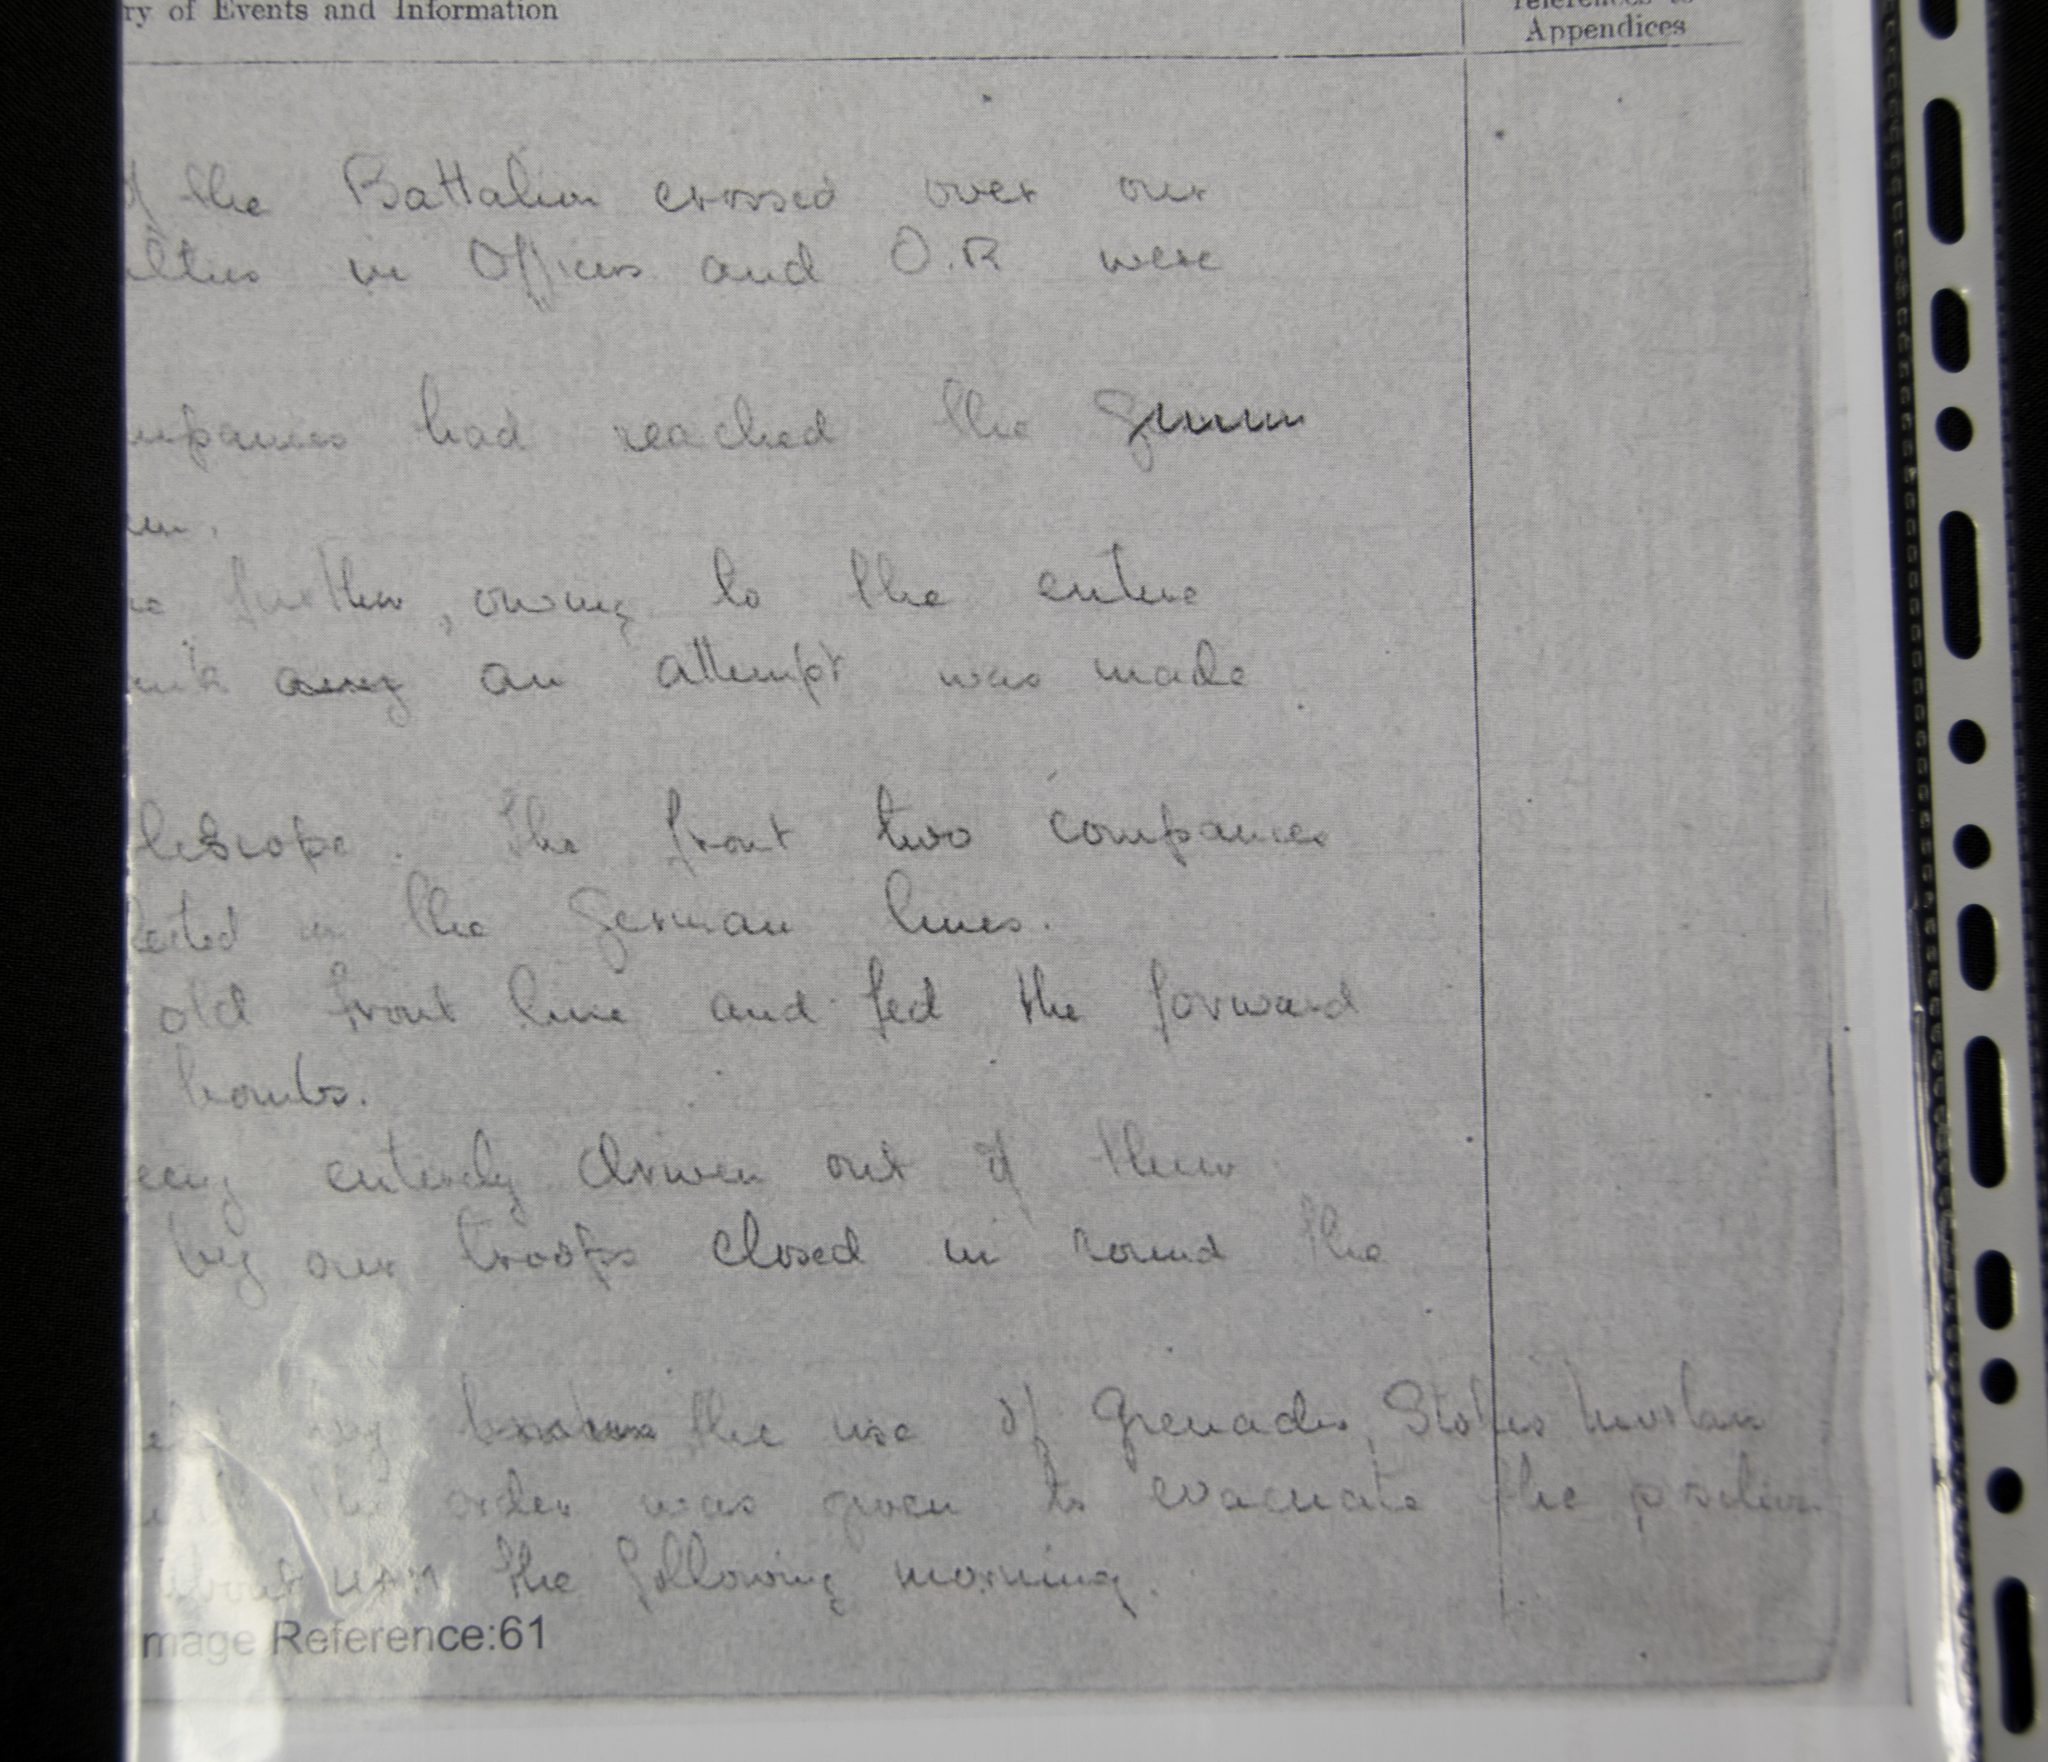 ry of Events and Information
references to
Appendices
of the Battalion crossed over our
alties in Officers and O.R were
mpanies had reached the German
further, owing to the entire
an attempt was made
lescope. The front two companies
in the German lines.
old front line and fed the forward
bombs.
eing entirely driven out of their
by our troops closed in round the
by the use of Grenades, Stokes Mortars
the order was given to evacuate the position
about 4 A.M the following morning.
mage Reference:61